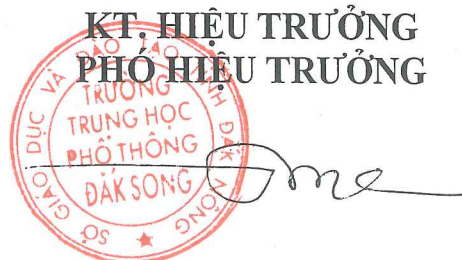 KT. HIỆU TRƯỞNG
PHÓ HIỆU TRƯỞNG
SỞ GIÁO DỤC VÀ ĐÀO TẠO TỈNH ĐẮK NÔNG
TRƯỜNG
TRUNG HỌC
PHỔ THÔNG
ĐĂK SONG